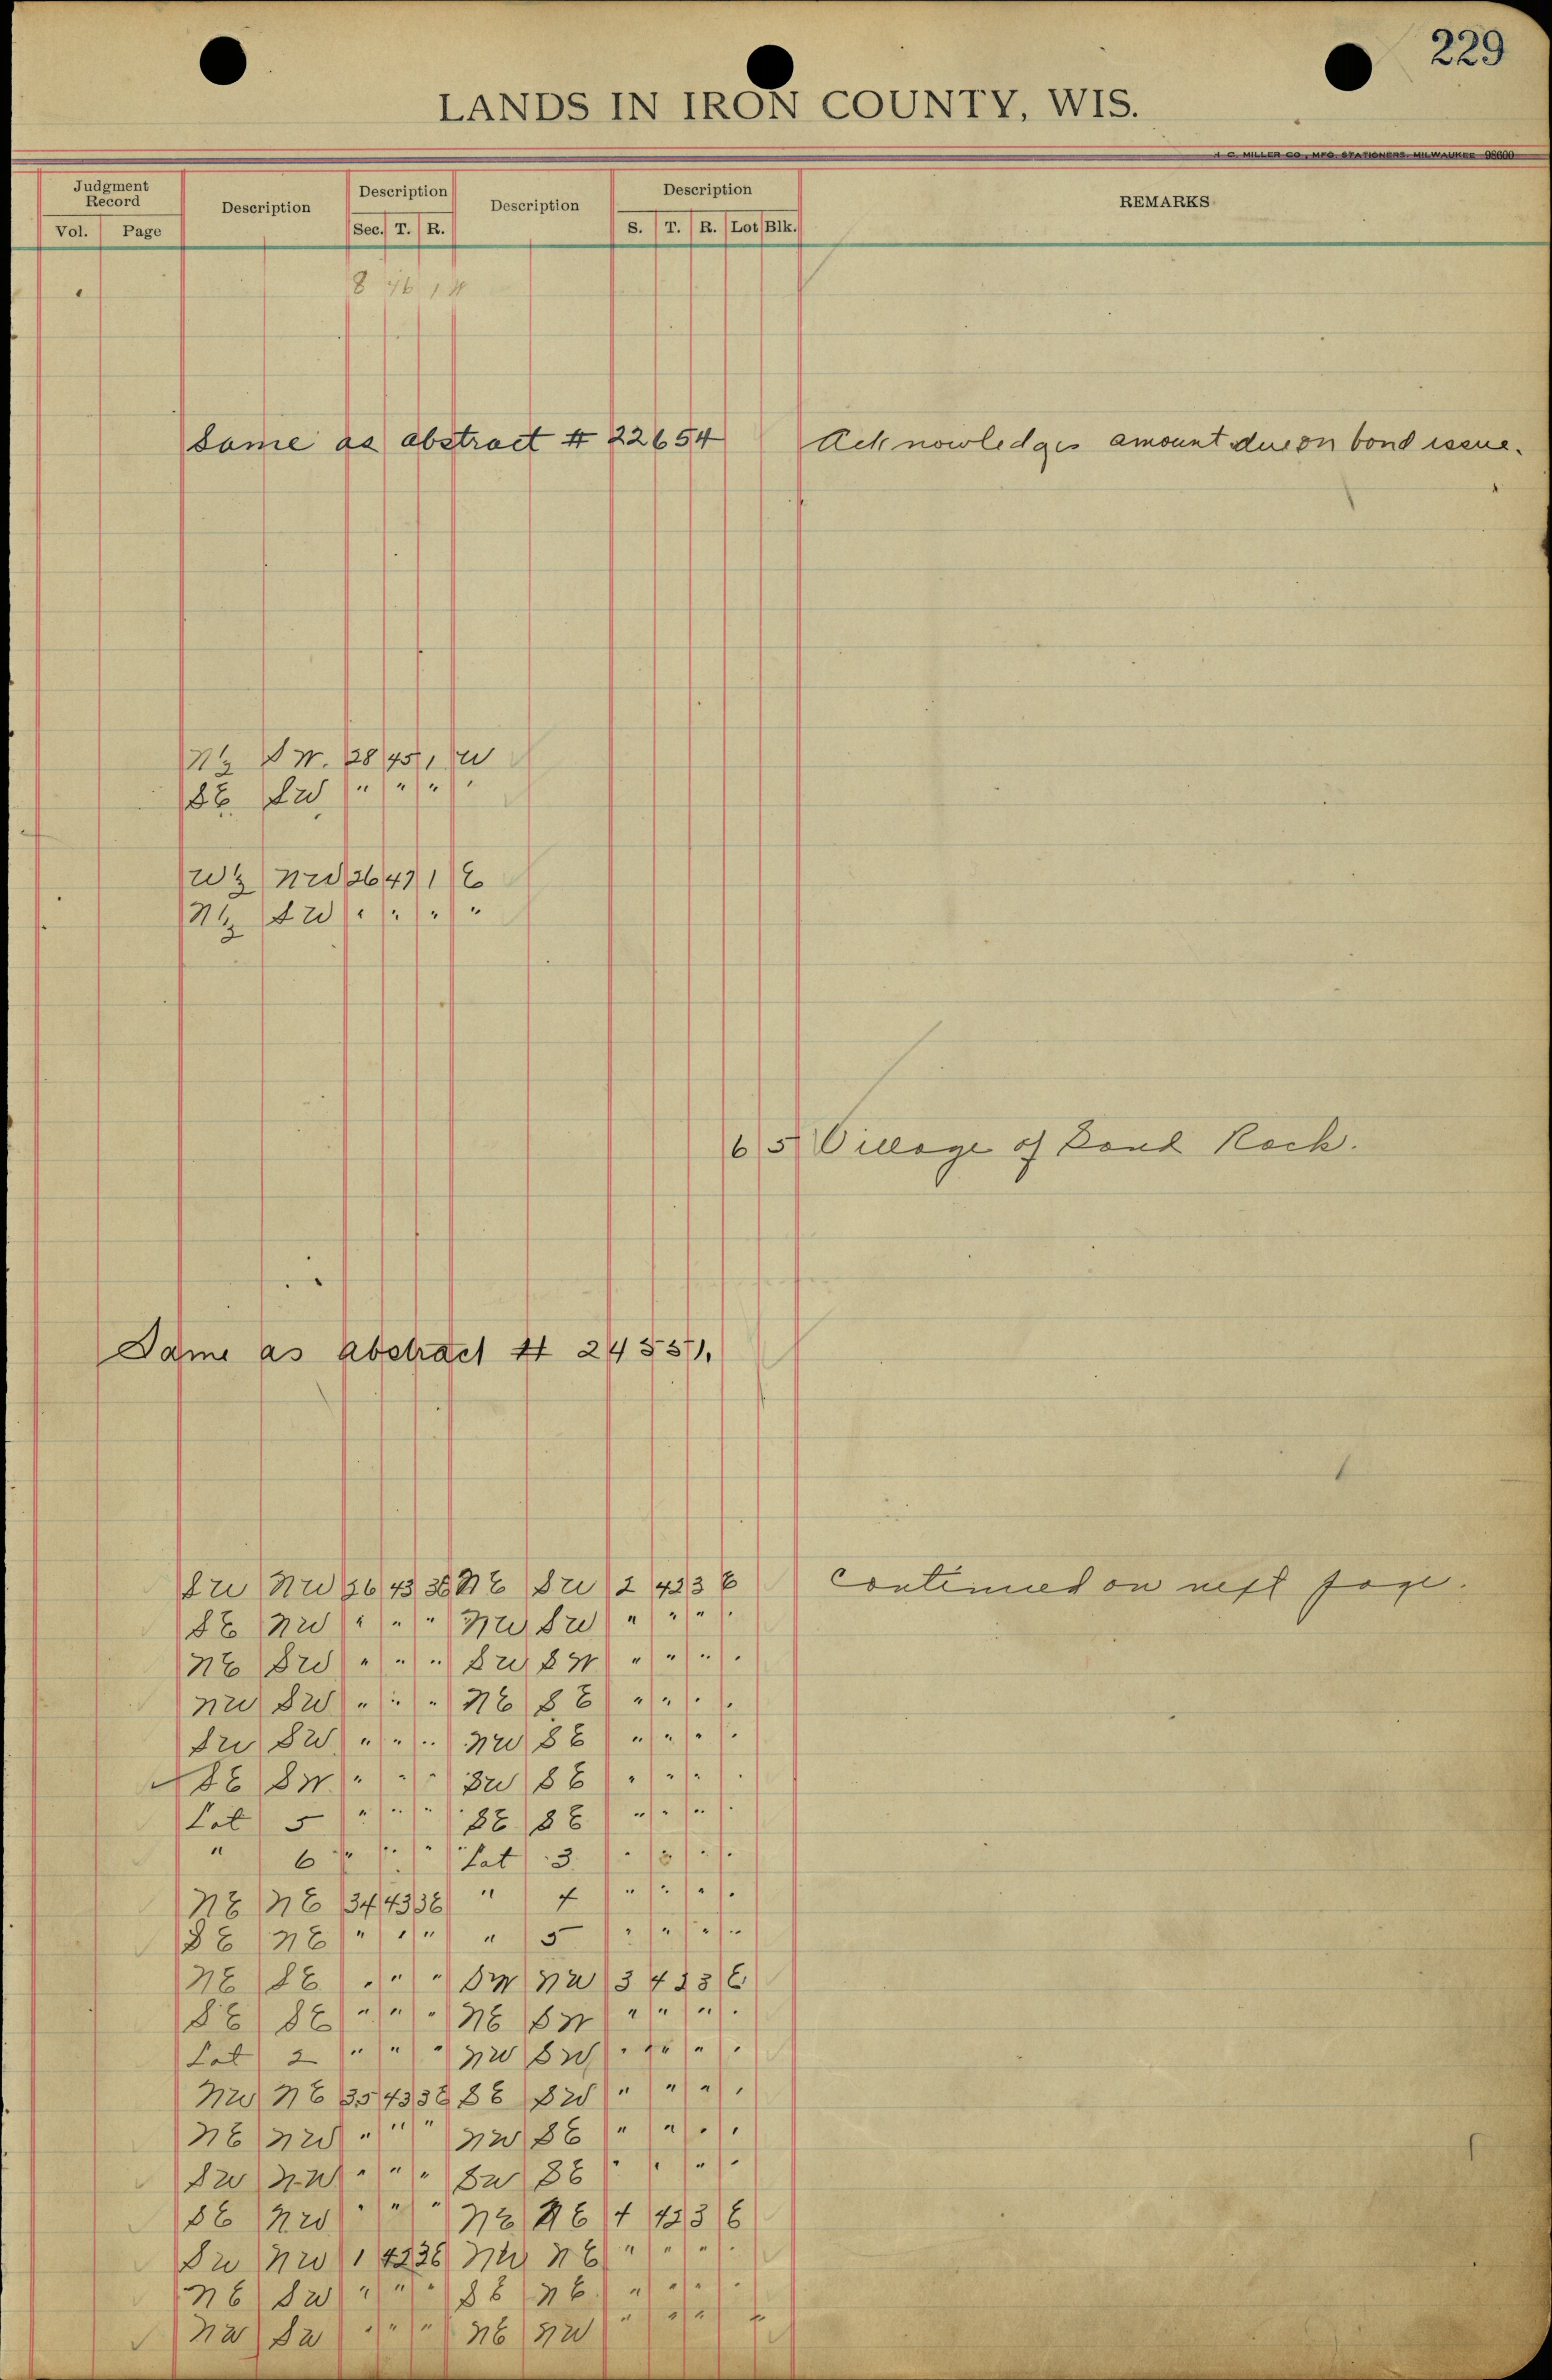 229
LANDS IN IRON COUNTY, WIS.
H. C. MILLER CO., MFG. STATIONERS, MILWAUKEE 98600
Judgment Record Description Description Description Description REMARKS
Vol. Page Sec. T. R. S. T. R. Lot Blk.
8 46 1 W
Same as abstract # 22654 Acknowledges amount due on bond issue.
N½ SW. 28 45 1 W
SE. SW " " " "
W½ NW 26 47 1 E
N½ SW " " " "
6 5 Village of Sand Rock.
Same as abstract # 24551.
SW NW 36 43 3E NE SW 2 42 3 E Continued on next page.
SE NW " " " NW SW " " " "
NE SW " " " SW SW " " " "
NW SW " " " NE SE " " " "
SW SW " " " NW SE " " " "
SE SW " " " SW SE " " " "
Lot 5 " " " SE SE " " " "
" 6 " " " Lot 3 " " " "
NE NE 34 43 3E " 4 " " " "
SE NE " " " " 5 " " " "
NE SE " " " SW NW 3 42 3 E
SE SE " " " NE SW " " " "
Lot 2 " " " NW SW " " " "
NW NE 35 43 3E SE SW " " " "
NE NW " " " NW SE " " " "
SW NW " " " SW SE " " " "
SE NW " " " NE NE 4 42 3 E
SW NW 1 42 3E NW NE " " " "
NE SW " " " SE NE " " " "
NW SW " " " NE NW " " " "